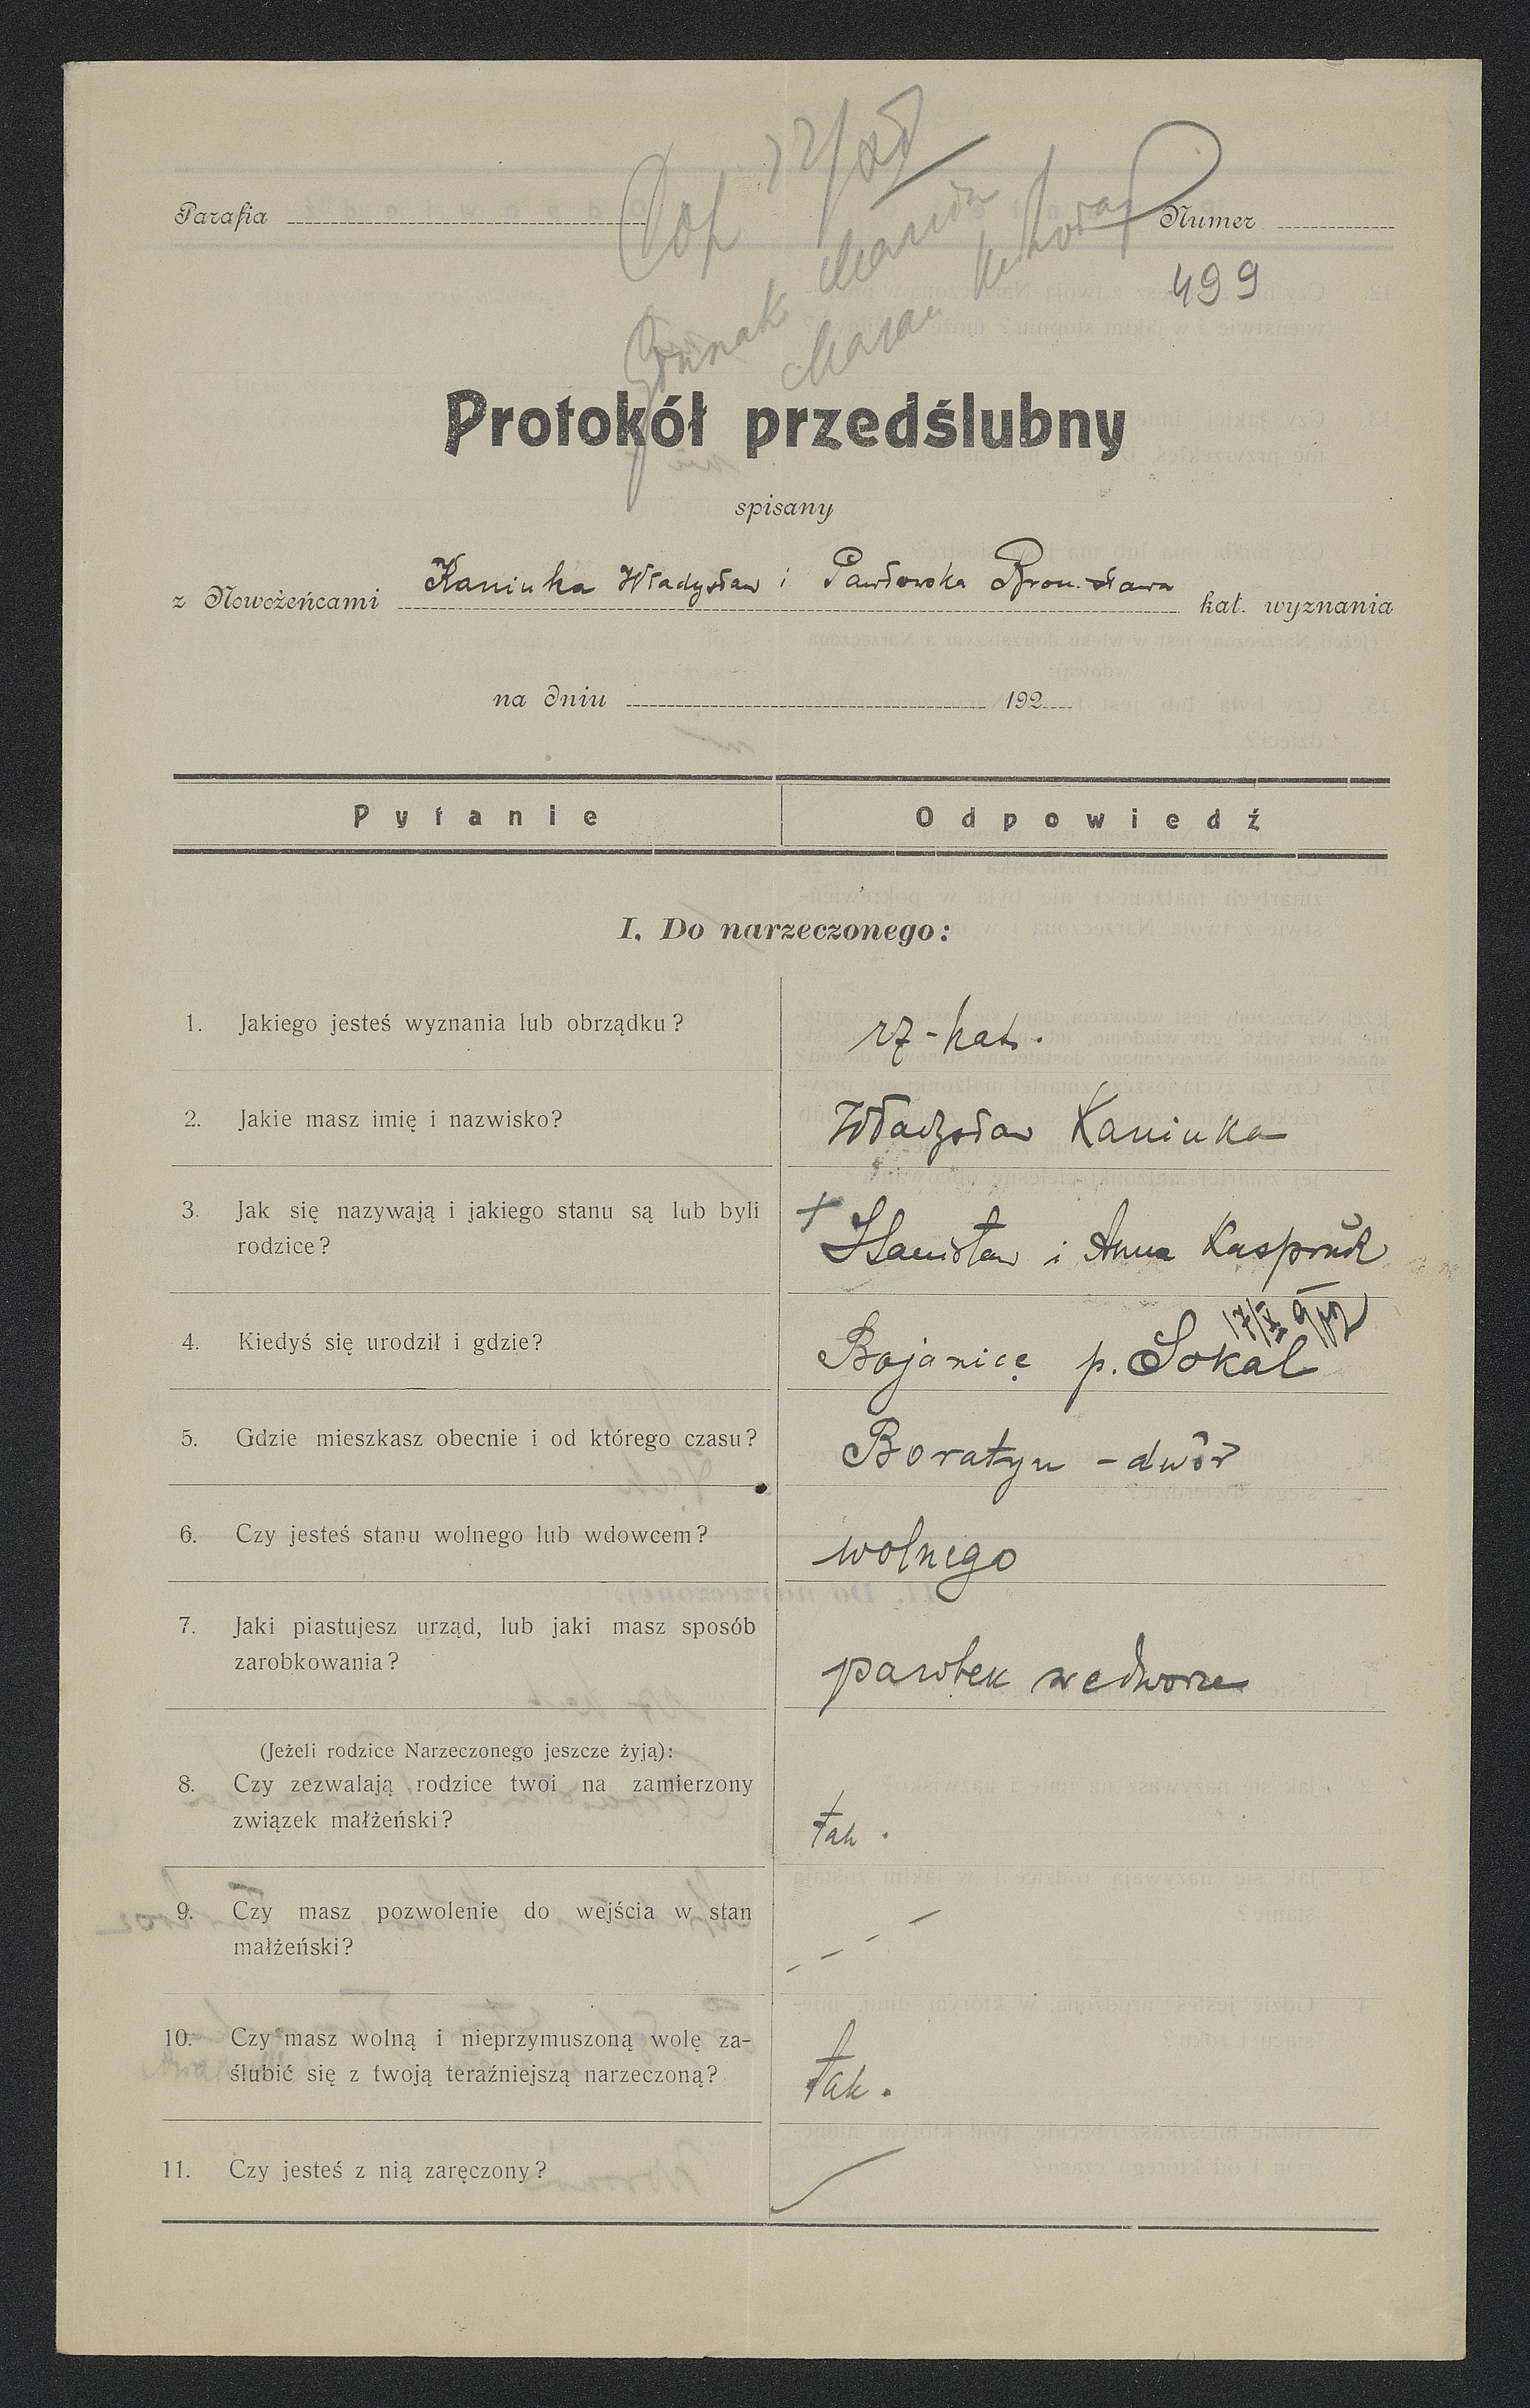 Parafia
Numer
499
Protokół przedślubny
spisany
z Nowożeńcami Kaniuka Władysław i Pawłowska Bronisława kat. wyznania
na dniu 192
Pytanie Odpowiedź
I. Do narzeczonego:
1. Jakiego jesteś wyznania lub obrządku? rz-kat.
2. Jakie masz imię i nazwisko? Władysław Kaniuka
3. Jak się nazywają i jakiego stanu są lub byli
rodzice? + Stanisław i Anna Kaspruk
4. Kiedyś się urodził i gdzie? Bojanice p. Sokal
5. Gdzie mieszkasz obecnie i od którego czasu? Boratyn - dwór
6. Czy jesteś stanu wolnego lub wdowcem? wolnego
7. Jaki piastujesz urząd, lub jaki masz sposób
zarobkowania? parobek we dworze
(Jeżeli rodzice Narzeczonego jeszcze żyją):
8. Czy zezwalają rodzice twoi na zamierzony
związek małżeński? tak.
9. Czy masz pozwolenie do wejścia w stan
małżeński? - - - -
10. Czy masz wolną i nieprzymuszoną wolę za-
ślubić się z twoją teraźniejszą narzeczoną? tak.
11. Czy jesteś z nią zaręczony?